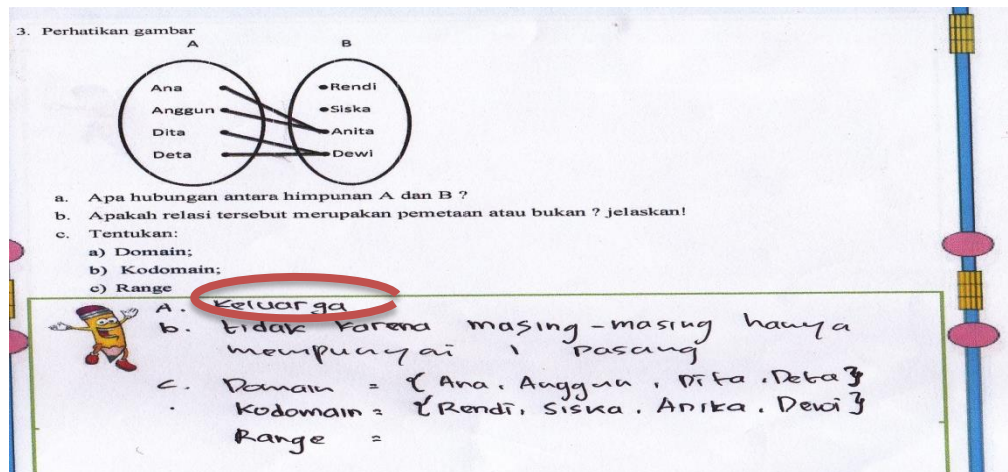 3. Perhatikan gambar
A B
Ana •Rendi
Anggun •Siska
Dita Anita
Deta Dewi
a. Apa hubungan antara himpunan A dan B ?
b. Apakah relasi tersebut merupakan pemetaan atau bukan ? jelaskan!
c. Tentukan:
a) Domain;
b) Kodomain;
c) Range
A. Keluarga
b. tidak karena masing-masing hanya
mempunyai 1 pasang
c. Domain = {Ana, Anggun, Dita, Deta}
Kodomain = {Rendi, Siska, Anita, Dewi}
Range =